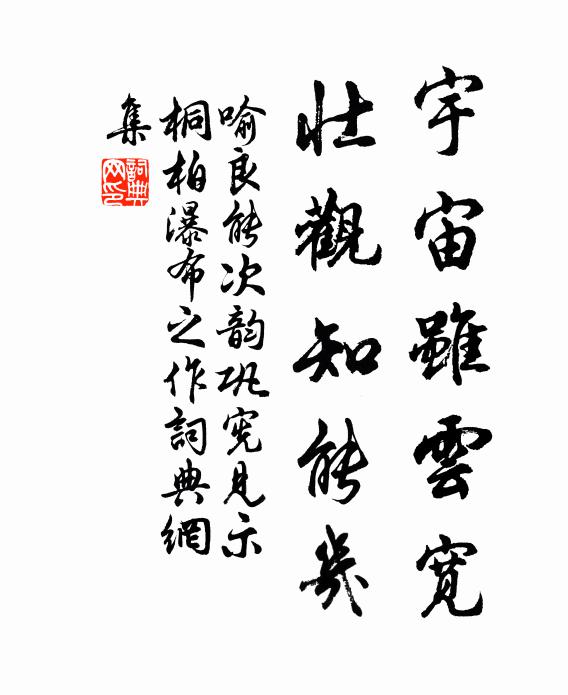 宇宙雖雲寬
壯觀知能幾
喻良能次韵巩宪見示
桐柏瀑布之作詞典網
集
詞典
网印